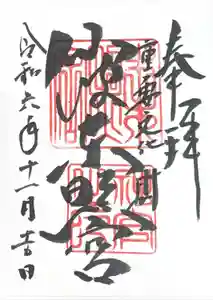 奉拝
重要文化財
仙波東照宮
令和六年十一月吉日